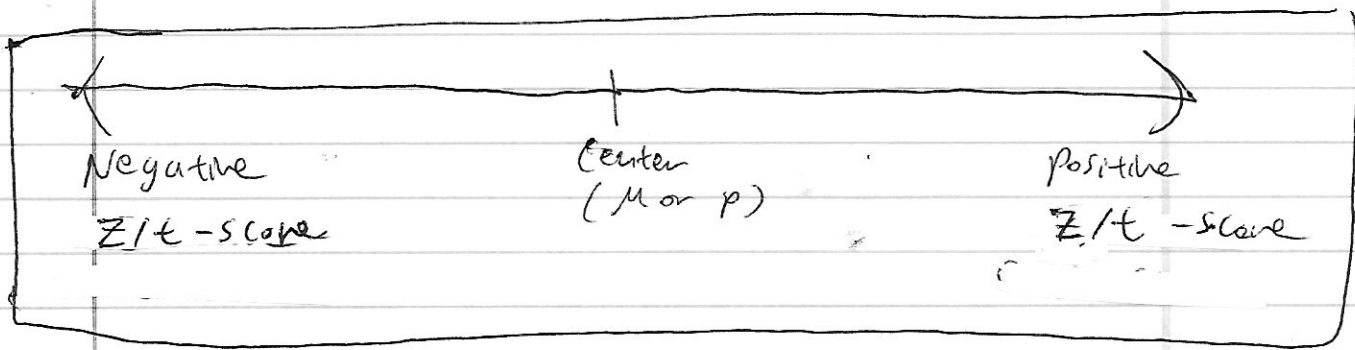 Negative
Z/t-score
Center
(μ or p)
Positive
Z/t-score